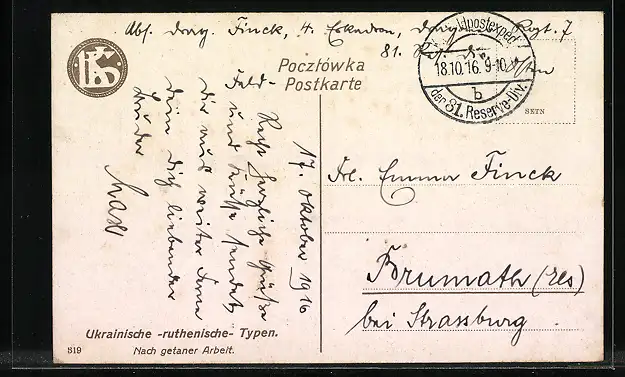 Abs. Drag. Finck, 4. Eskadron, Drag. Regt. 7
81. Res. Div.
Feldpostexped.
18.10.16. 9-10 V
b
der 81. Reserve-Div.
Pocztówka
Feld- Postkarte
SETN
17. Oktober 1916
Recht herzliche Grüße
und Küsse sendet
Dir aus weiter Ferne
Dein Dich liebender
Bruder
Karl
Frl. Emma Finck
Brumath (Els)
bei Strassburg.
Ukrainische -ruthenische- Typen.
319
Nach getaner Arbeit.